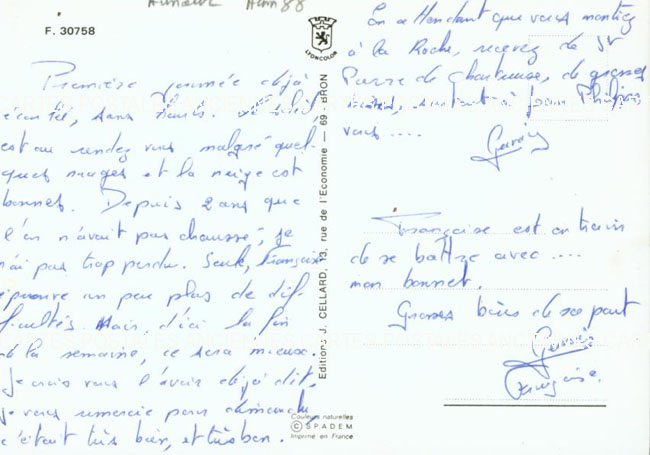 F. 30758
LYONCOLOR
Première journée déjà
écoulée, sans heurts. Le soleil
est au rendez vous malgré quel-
ques nuages et la neige est
bonnes. Depuis 2 ans que
l'on n'avait pas chaussé, je
n'ai pas trop perdu. Seule, Françoise
éprouve un peu plus de dif
ficultés. Mais, d'ici la fin
de la semaine, ce sera mieux.
Je crois vous l'avoir déjà dit,
je vous remercie pour dimanche
c'était très bien, et très bon.
Editions J. CELLARD, 13, rue de l'Economie — 69 - BRON
Couleurs naturelles
© SPADEM
Imprimé en France
En attendant que vous montiez
à la Roche, recevez de St
Pierre de Chartreuse, de grosses
bises, surtout à pour Philippe
vous ....
Françoise est en train
de se battre avec ....
mon bonnet.
Grosses bises de sa part
Françoise.